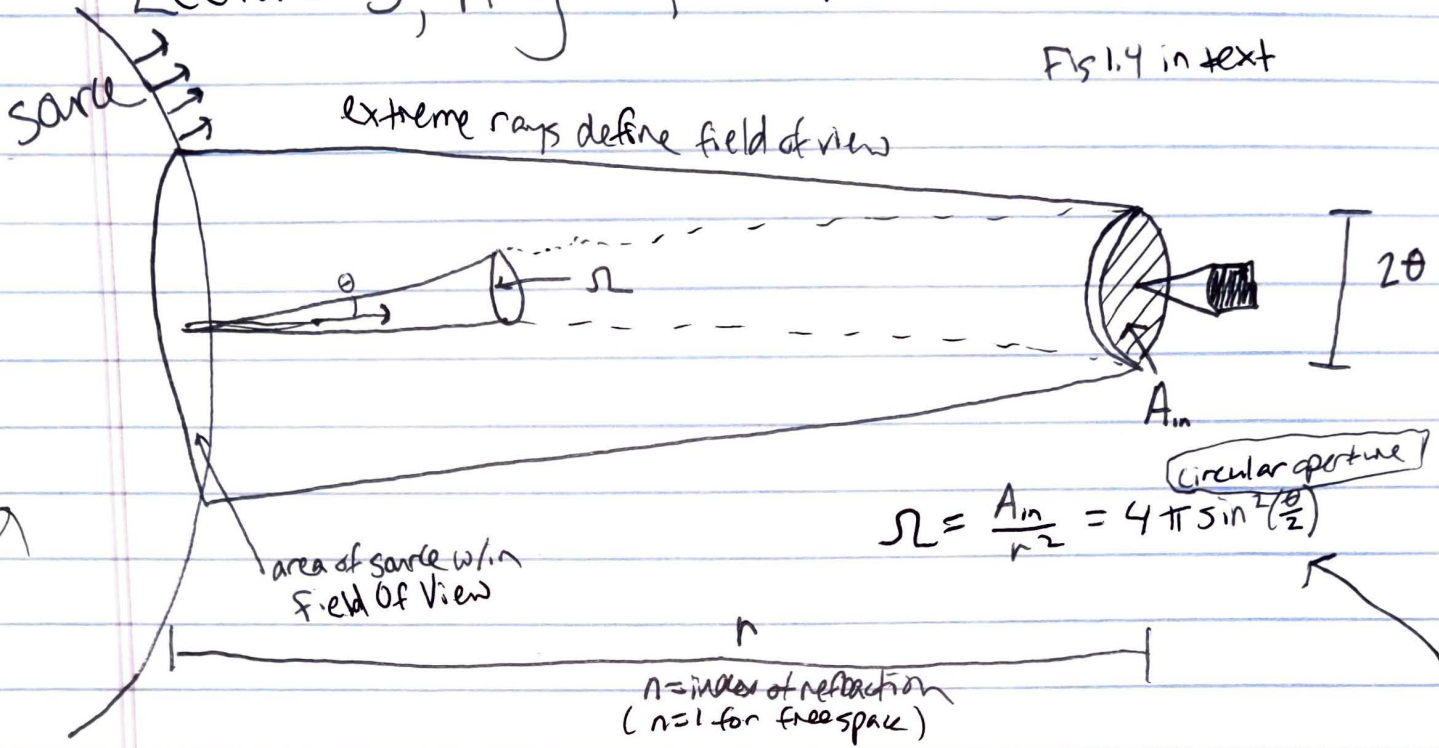 Fig 1.4 in text
source
extreme rays define field of view
θ
Ω
2θ
A_in
circular aperture
Ω = A_in / r² = 4π sin²(θ/2)
area of source w/in
Field Of View
r
n=index of refraction
(n=1 for free space)